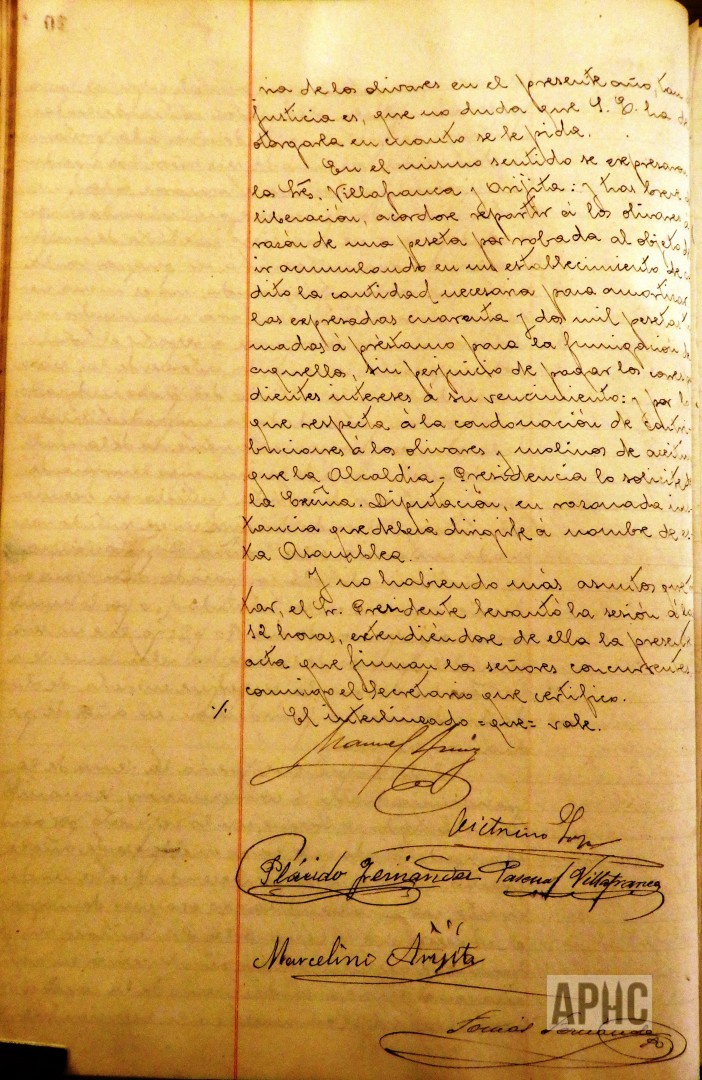 ria de los olivares en el presente año, tan
justicia es, que no duda que S. E. ha de
otorgarla en cuanto se le pida.
En el mismo sentido se expresaron
los Srs. Villafranca y Arijita: y tras breve
liberación, acordose repartir á los olivares á
razón de una peseta por robada al objeto de
ir acumulando en un establecimiento de
dito la cantidad necesaria para amortizar
las expresadas cuarenta y dos mil pesetas
madas á prestamo para la fumigación de
aquellos, sin perjuicio de pagar los corres
dientes intereses á su vencimiento: y por lo
que respecta á la condonación de contri-
buciones á los olivares y molinos de aceite
que la Alcaldia-Presidencia lo solicite de
la Excma. Diputación, en razonada ins-
tancia que deberá dirigirle á nombre de es-
ta Asamblea.
Y no habiendo más asuntos que
tar, el Sr. Presidente levantó la sesión á las
12 horas, extendiéndose de ella la presente
acta que firman los señores concurrentes
conmigo el Secretario que certifico.
El interlineado =que= vale.
Manuel
Victorino
Plácido Fernández Pascual Villafranca
Marcelino Arijita
APHC
Tomás Fernández